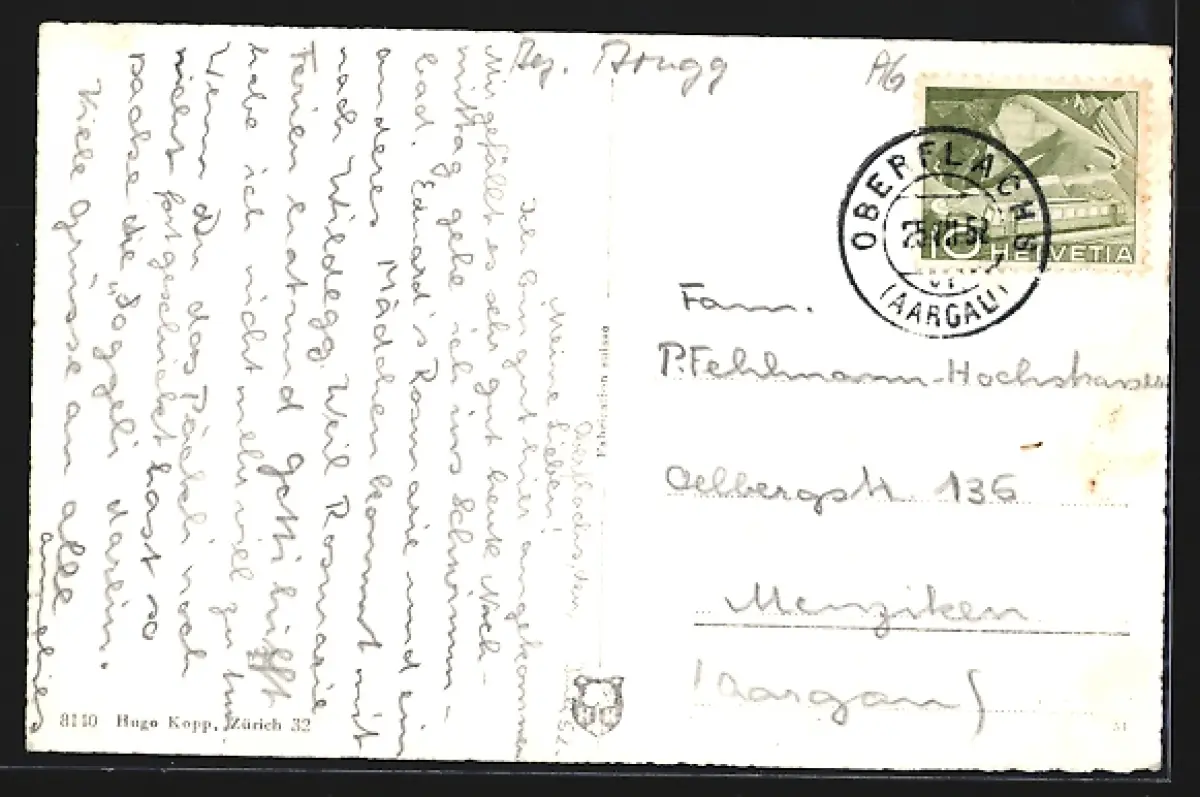 Bez. Brugg
A/6
OBERFLACHS
25.VII.52
(AARGAU)
10 HELVETIA
Oberflachs, den
Meine Lieben!
Ich bin gut hier angekommen
mir gefällt es sehr gut heute Nach-
mittag gehe ich ins Schwimm-
bad. Eduard's Rosmarie und ein
anderes Mädchen kommt mit
nach Wildegg. Weil Rosmarie
Ferien hat und Gotti hilft
habe ich nicht mehr viel zu tun
Wenn du das Päckli noch
nicht fortgeschickt hast so
packe die "Söggeli" darein.
Viele Grüsse an alle
Fabrication suisse
Fam.
P. Fehlmann-Hochstrasser
Oelbergstr. 136
Menziken
(Aargau)
8140 Hugo Kopp, Zürich 32
51